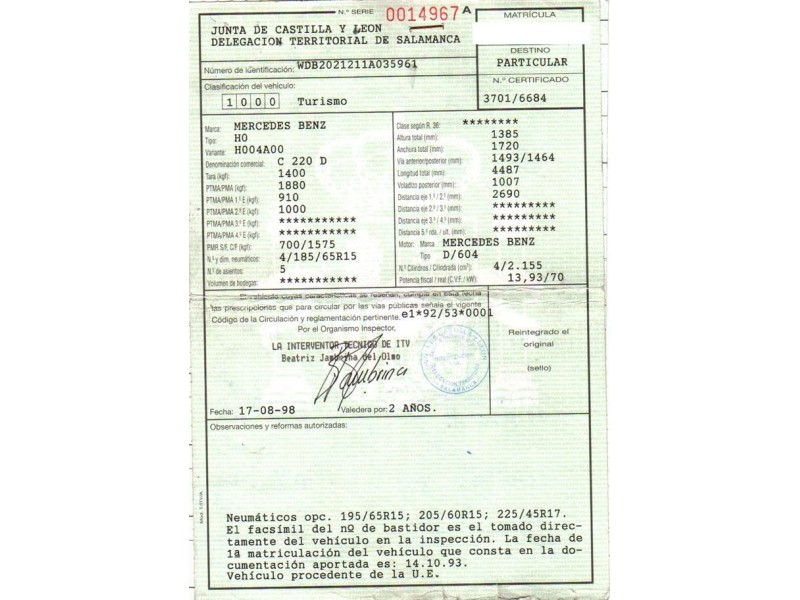 N.º SERIE 0014967 A
JUNTA DE CASTILLA Y LEON
DELEGACION TERRITORIAL DE SALAMANCA
MATRÍCULA
DESTINO
PARTICULAR
Número de identificación: WDB2021211A035961
N.º CERTIFICADO
Clasificación del vehículo:
1000 Turismo
3701/6684
Marca: MERCEDES BENZ
Tipo: HO
Variante: H004A00
Denominación comercial: C 220 D
Tara (kgf): 1400
PTMA/PMA (kgf): 1880
PTMA/PMA 1.º E (kgf): 910
PTMA/PMA 2.º E (kgf): 1000
PTMA/PMA 3.º E (kgf): ***********
PTMA/PMA 4.º E (kgf): ***********
PMR S/F, C/F (kgf): 700/1575
N.º y dim. neumáticos: 4/185/65R15
N.º de asientos: 5
Volumen de bodegas: ***********
Clase según R. 36: ********
Altura total (mm): 1385
Anchura total (mm): 1720
Vía anterior/posterior (mm): 1493/1464
Longitud total (mm): 4487
Voladizo posterior (mm): 1007
Distancia eje 1.º/2.º (mm): 2690
Distancia eje 2.º/3.º (mm): *********
Distancia eje 3.º/4.º (mm): *********
Distancia 5.ª rda. / últ. (mm): *********
Motor: Marca MERCEDES BENZ
Tipo D/604
N.º Cilindros / Cilindrada (cm³): 4/2.155
Potencia fiscal / real (C.V.F. / kW): 13,93/70
El vehículo cuyas características se reseñan, cumple en esta fecha
las prescripciones que para circular por las vías públicas señala el vigente
Código de la Circulación y reglamentación pertinente. e1*92/53*0001
Por el Organismo Inspector,
LA INTERVENTOR TECNICO DE ITV
Beatriz Jambrina del Olmo
SALAMANCA
Reintegrado el
original
(sello)
Fecha: 17-08-98 Valedera por: 2 AÑOS.
Observaciones y reformas autorizadas:
Neumáticos opc. 195/65R15; 205/60R15; 225/45R17.
El facsímil del nº de bastidor es el tomado direc-
tamente del vehículo en la inspección. La fecha de
1ª matriculación del vehículo que consta en la do-
cumentación aportada es: 14.10.93.
Vehículo procedente de la U.E.